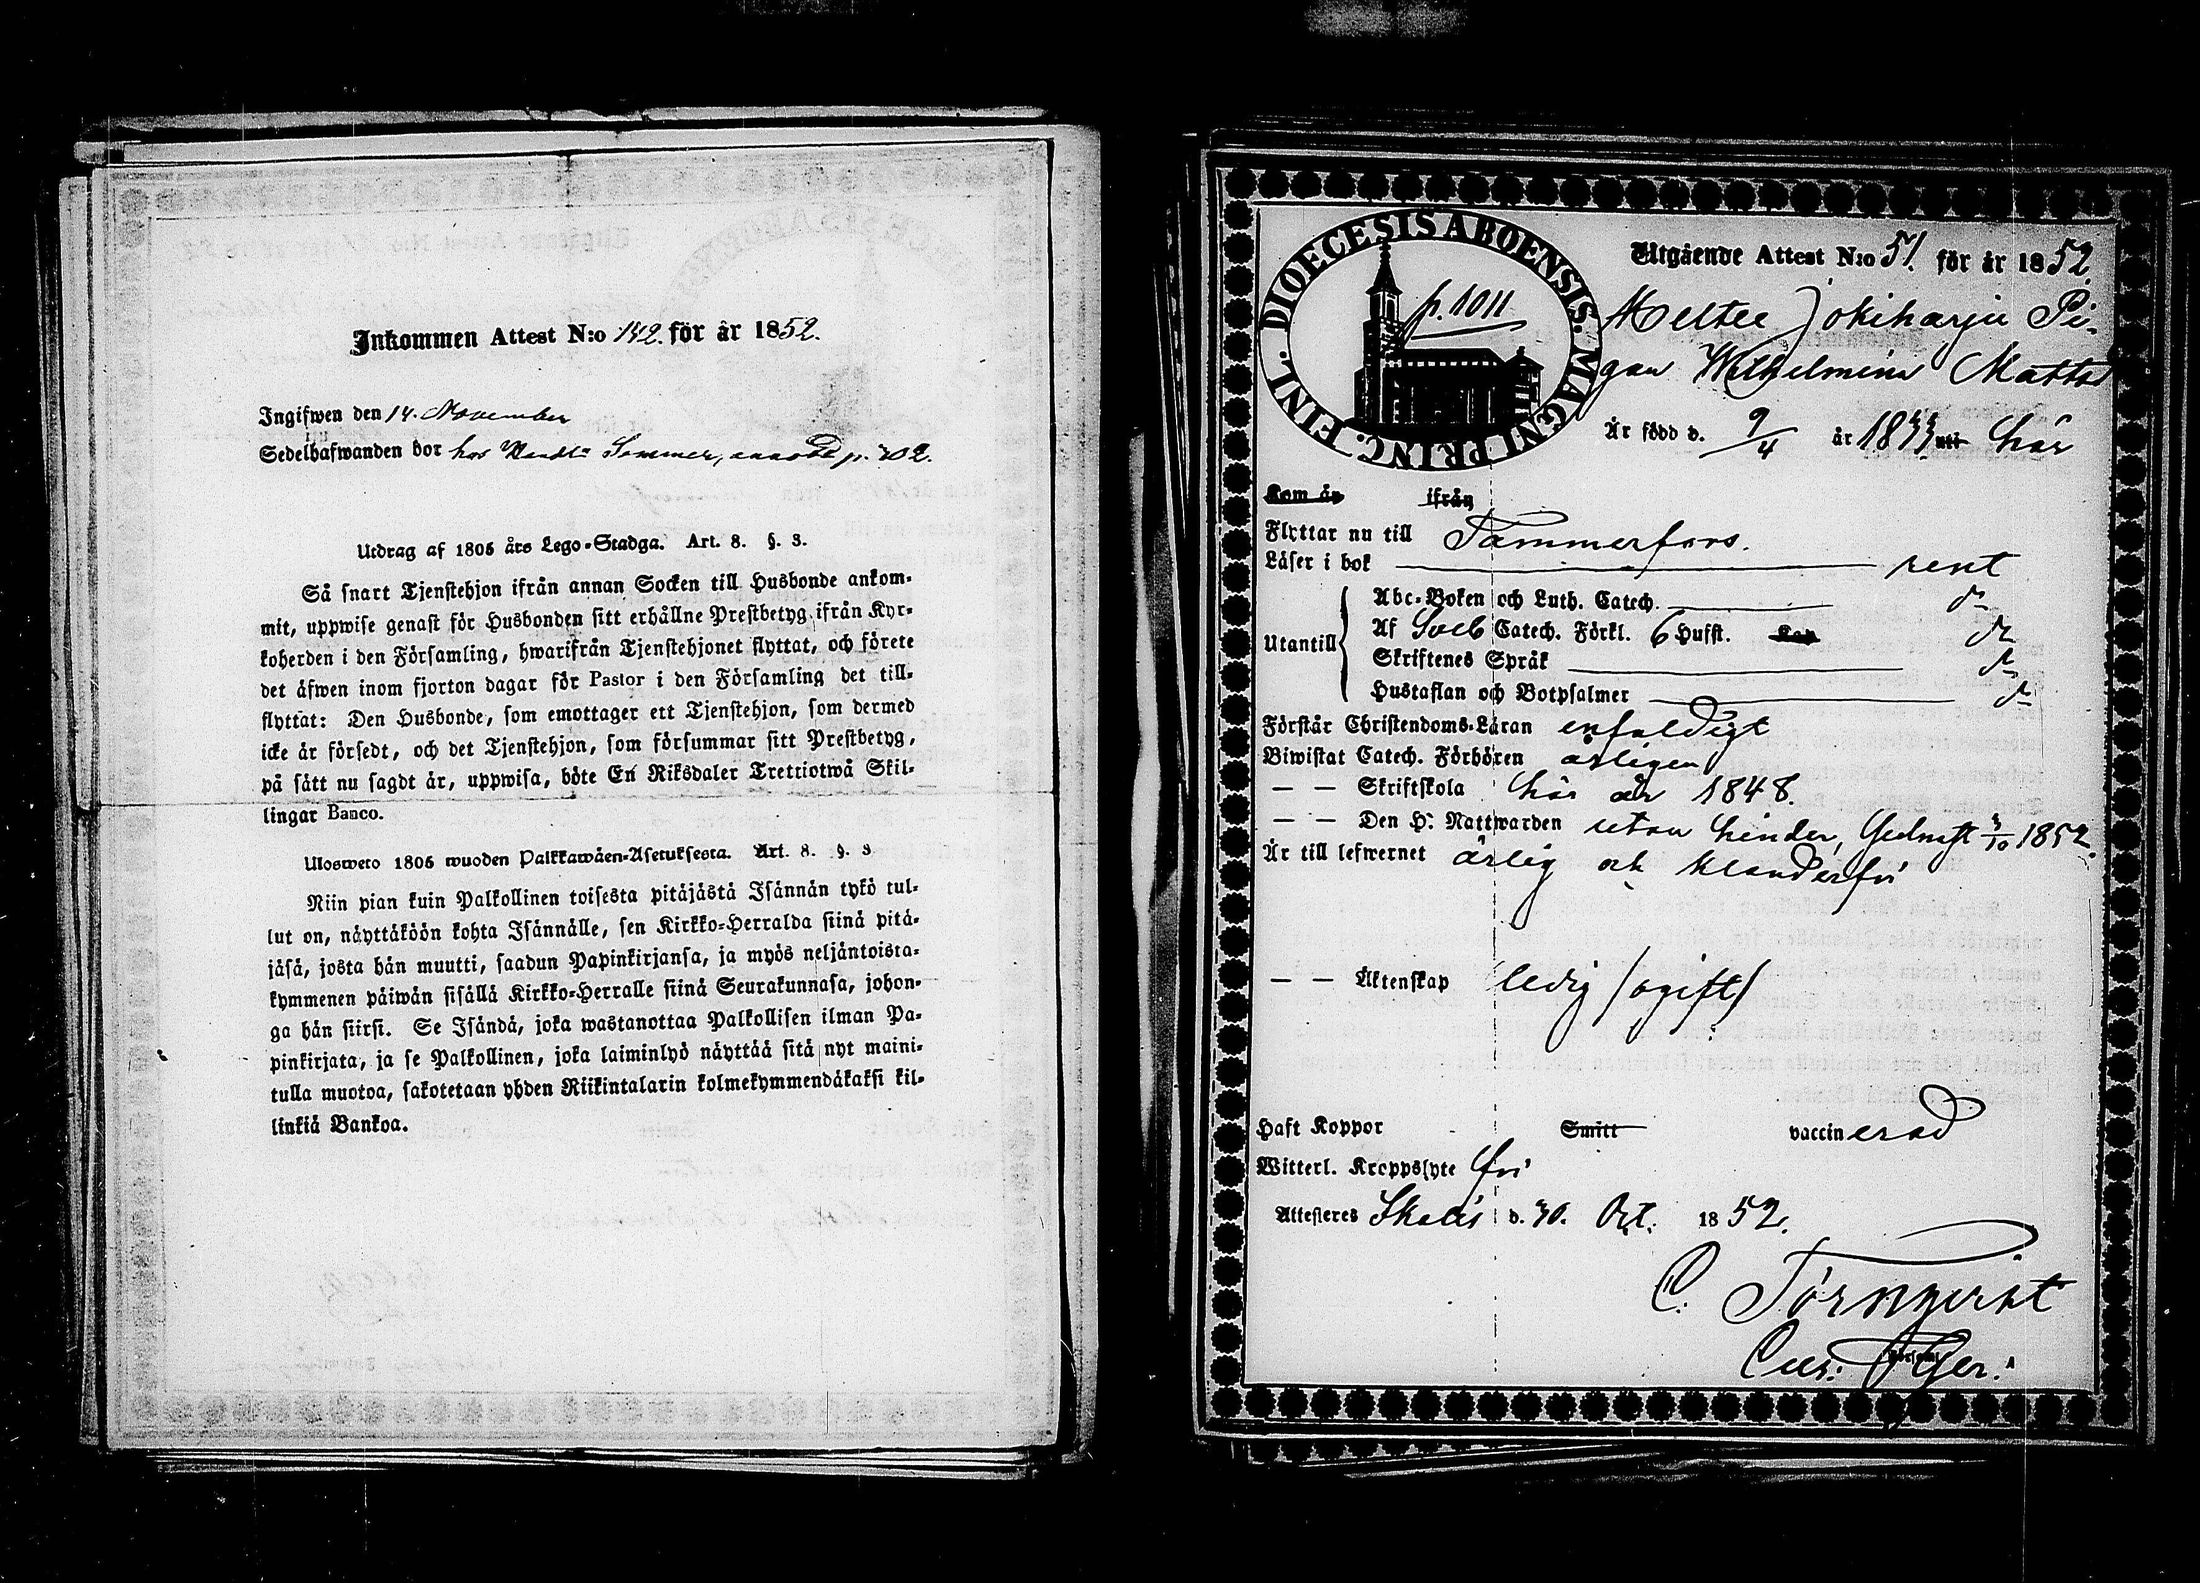 Inkommen Attest N:o 142. för år 1852.
Ingifwen den 14. November
Sedelhafwanden bor hos Handl: Sommer, p. 302.
Utdrag af 1805 års Lego-Stadga. Art. 8. §. 3.
Så snart Tjenstehjon ifrån annan Socken till Husbonde ankom-
mit, uppwise genast för Husbonden sitt erhållne Prestbetyg ifrån Kyr-
koherden i den Församling, hwarifrån Tjenstehjonet flyttat, och förete
det äfwen inom fjorton dagar för Pastor i den Församling det till-
flyttat: Den Husbonde, som emottager ett Tjenstehjon, som dermed
icke är försedt, och det Tjenstehjon, som försummar sitt Prestbetyg,
på sätt nu sagdt är, uppwisa, böte En Riksdaler Trettiotwå Skil-
lingar Banco.
Ulosweto 1805 wuoden Palkkawäen-Asetuksesta. Art. 8. §. 3
Niin pian kuin Palkollinen toisesta pitäjästä Isännän tykö tul-
lut on, näyttäköön kohta Isännälle, sen Kirkko-Herralda siinä pitä-
jäsä, josta hän muutti, saadun Papinkirjansa, ja myös neljäntoista-
kymmenen päiwän sisällä Kirkko-Herralle siinä Seurakunnasa, johon-
ga hän siirsi. Se Isändä, joka wastanottaa Palkollisen ilman Pa-
pinkirjata, ja se Palkollinen, joka laiminlyö näyttää sitä nyt maini-
tulla muotoa, sakotetaan yhden Riikintalarin kolmekymmendäkaksi kil-
linkiä Bankoa.
DIOECESIS ABOENSIS. MAGNI PRINC. FINL.
p. 1011
Utgående Attest N:o 51. för år 1852
Meltee Jokiharju Pi-
gan Wilhelmina Matts
Är född d. 9/4 år 1833 uti här
Kom år ifrån
Flyttar nu till Tammerfors.
Läser i bok rent
Utantill
Abc-Boken och Luth. Catech. d:o
Af Sveb Catech. Förkl. 6 Hufst. Kap d:o
Skriftenes Språk d:o
Hustaflan och Botpsalmer d:o
Förstår Christendoms-Läran enfaldigt
Biwistat Catech. Förhören årligen
— — Skriftskola här år 1848.
— — Den H. Nattwarden utan hinder, sednast 3/10 1852.
Är till lefwernet ärlig och klanderfri
— — Äktenskap ledig /ogift/
Haft Koppor Smitt vaccinerad
Witterl. Kroppslyte fri
Attesteres Skalis d. 30. Oct. 1852.
C. Törnqvist